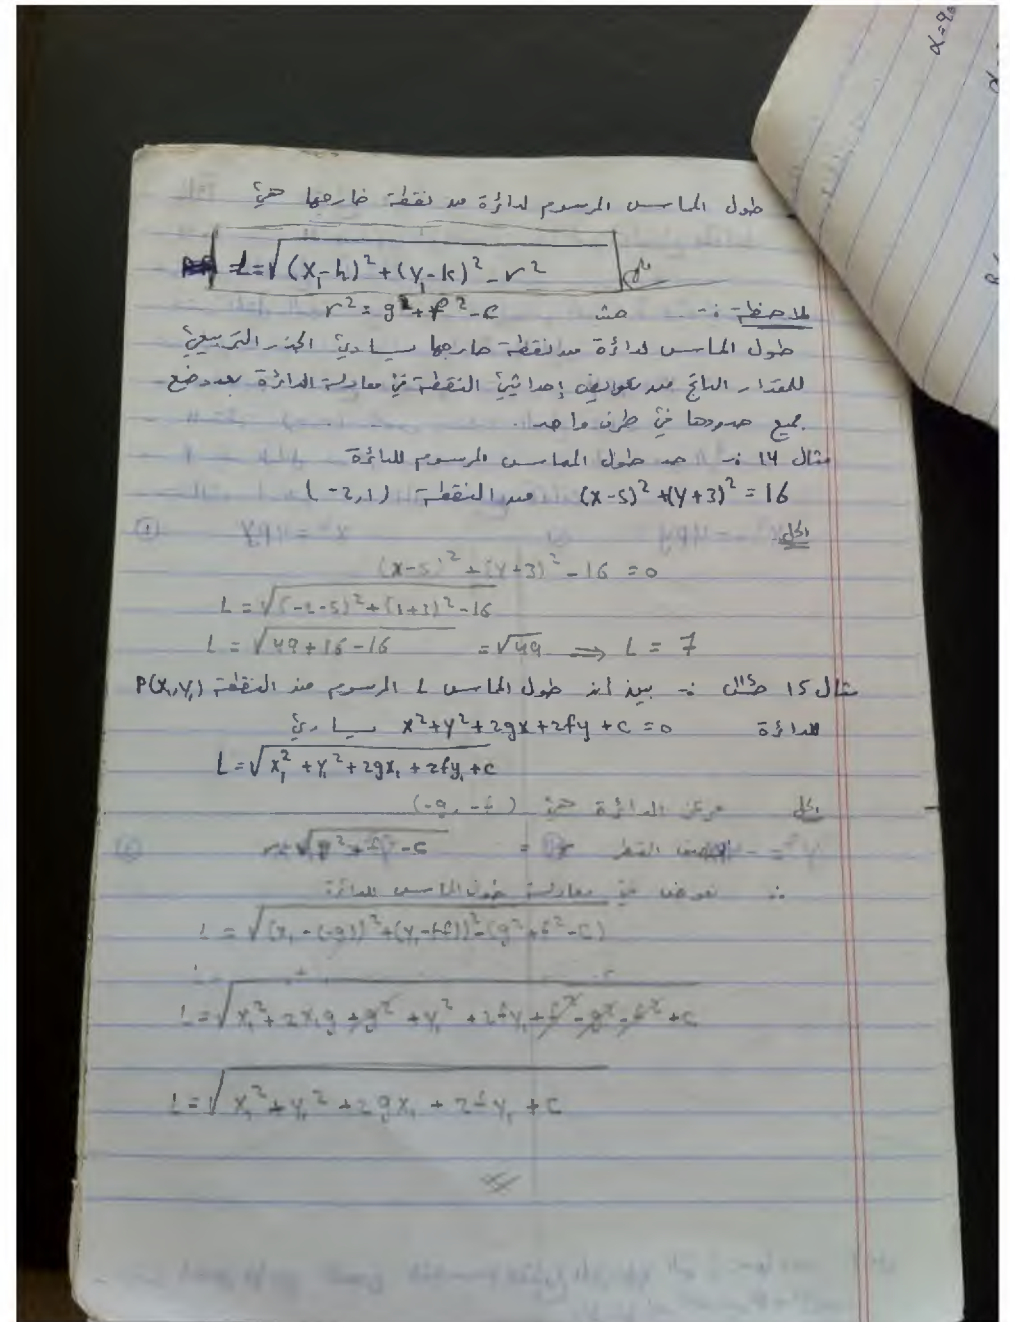 طول المماس المرسوم لدائرة من نقطة خارجها هي
L=√(x₁-h)²+(y₁-k)²-r²
حيث r²=g²+f²-c
ملاحظة :-
طول المماس لدائرة من نقطة خارجها يساوي الجذر التربيعي
للمقدار الناتج من تعويض إحداثيي النقطة في معادلة الدائرة بعد وضع
جميع حدودها في طرف واحد.
مثال 14 :- جد طول المماس المرسوم للدائرة
(x-5)²+(y+3)²=16 من النقطة (-2,1)
الحل
(x-5)²+(y+3)²-16=0
L=√(-2-5)²+(1+3)²-16
L=√49+16-16 =√49 ⟹ L=7
مثال 15 :- بين أن طول المماس L المرسوم من النقطة P(x₁,y₁)
للدائرة x²+y²+2gx+2fy+c=0 يساوي
L=√x₁²+y₁²+2gx₁+2fy₁+c
الحل مركز الدائرة هي (-g,-f)
نصف القطر = r=√g²+f²-c
∴ نعوض في معادلة طول المماس للدائرة
L=√(x₁-(-g))²+(y₁-(-f))²-(g²+f²-c)
L=√x₁²+2x₁g+g²+y₁²+2fy₁+f²-g²-f²+c
L=√x₁²+y₁²+2gx₁+2fy₁+c